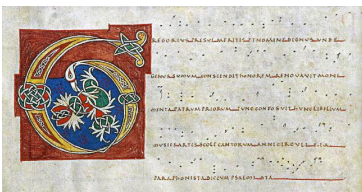 GREGORIUS PRESUL MERITIS ET NOMINE DIGNUS UNDE
CONSCENDIT HONOREM RENOVAVIT MONI
MENTA PATRUM PRIORUM TUNC CONPOSUIT HUNC LIBELLUM
MUSICE ARTIS SCOLE CANTORUM ANNI CIRCULI EIA
PARAPHONISTA DIC CUM